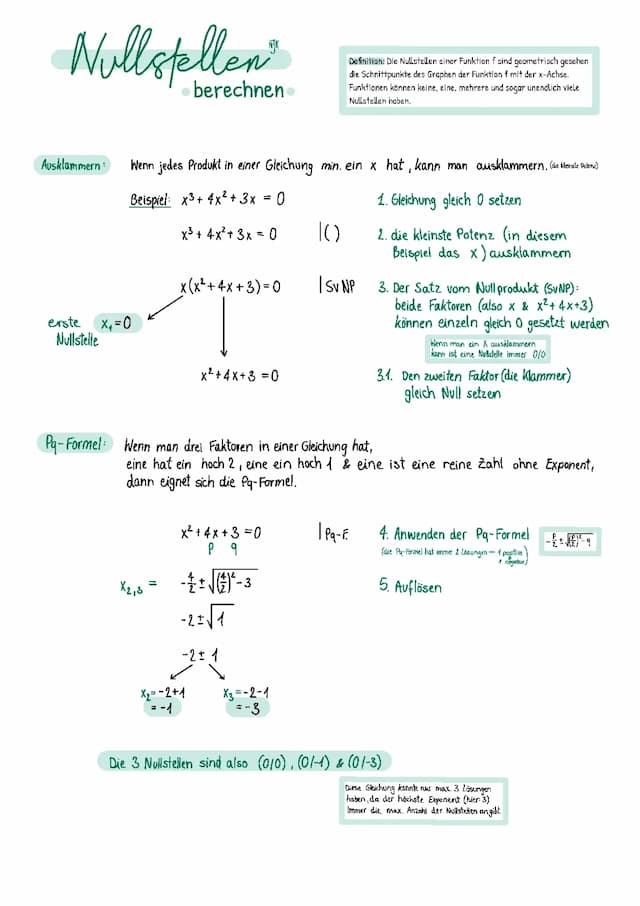 Nullstellen
berechnen
Definition: Die Nullstellen einer Funktion f sind geometrisch gesehen
die Schnittpunkte des Graphen der Funktion f mit der x-Achse.
Funktionen können keine, eine, mehrere und sogar unendlich viele
Nullstellen haben.
Ausklammern: Wenn jedes Produkt in einer Gleichung min. ein x hat, kann man ausklammern. (die kleinste Potenz)
Beispiel: x³ + 4x² + 3x = 0 1. Gleichung gleich 0 setzen
x³ + 4x² + 3x = 0 |( ) 2. die kleinste Potenz (in diesem
Beispiel das x) ausklammern
x(x² + 4x + 3) = 0 | SvNP 3. Der Satz vom Nullprodukt (SvNP):
beide Faktoren (also x & x² + 4x + 3)
können einzeln gleich 0 gesetzt werden
erste x₁ = 0
Nullstelle
Wenn man ein x ausklammern
kann ist eine Nullstelle immer 0/0
x² + 4x + 3 = 0 3.1. Den zweiten Faktor (die Klammer)
gleich Null setzen
Pq-Formel: Wenn man drei Faktoren in einer Gleichung hat,
eine hat ein hoch 2, eine ein hoch 1 & eine ist eine reine Zahl ohne Exponent,
dann eignet sich die Pq-Formel.
x² + 4x + 3 = 0 | Pq-F. 4. Anwenden der Pq-Formel -p/2 ± √(p/2)² - q
p q (die Pq-Formel hat immer 2 Lösungen – 1 positive
1 negative)
x₂,₃ = -4/2 ± √(4/2)² - 3 5. Auflösen
-2 ± √1
-2 ± 1
x₂ = -2+1 x₃ = -2-1
= -1 = -3
Die 3 Nullstellen sind also (0/0), (0/-1) & (0/-3)
Diese Gleichung konnte nur max. 3 Lösungen
haben, da der höchste Exponent (hier: 3)
immer die max. Anzahl der Nullstellen angibt